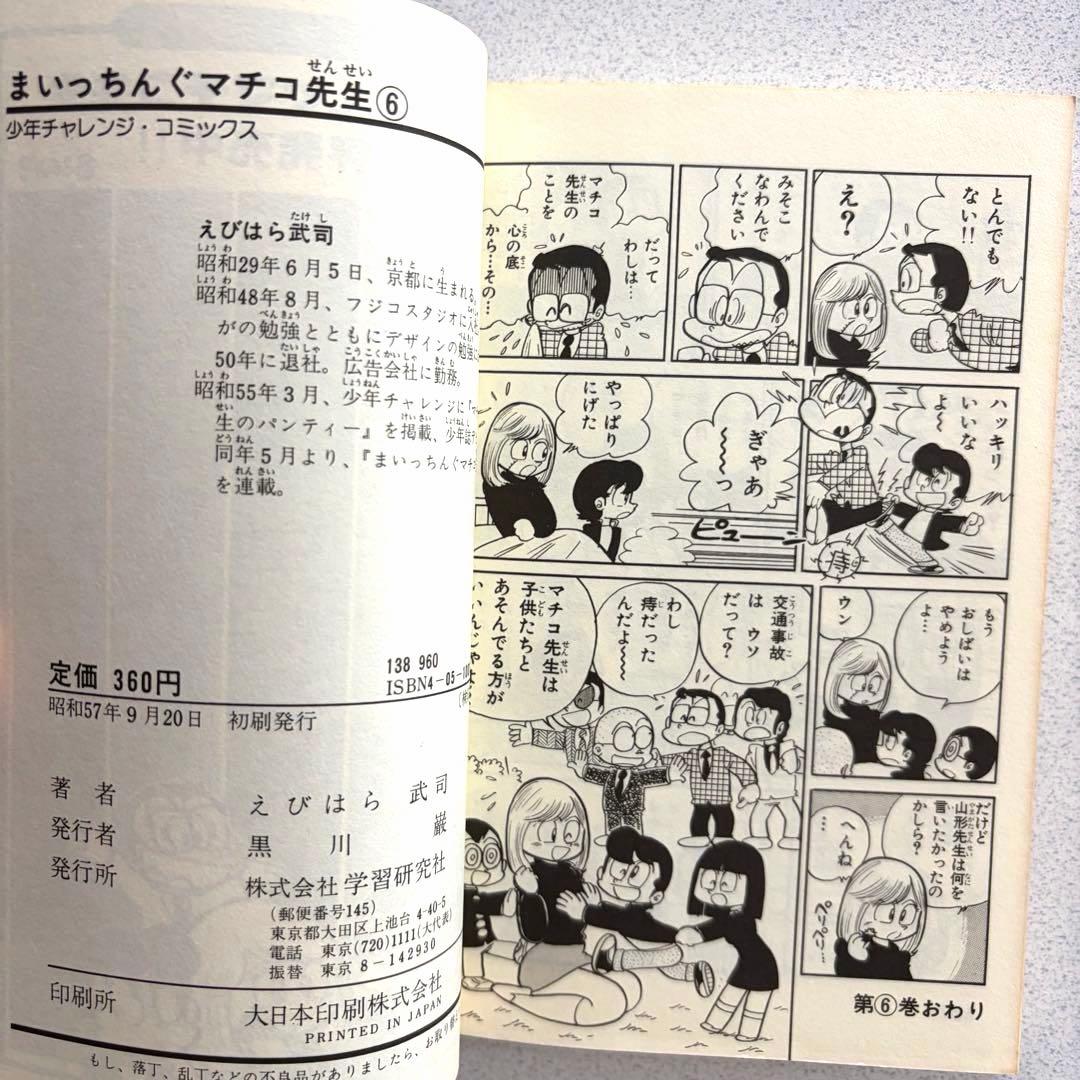 まいっちんぐマチコ先生⑥
せんせい
少年チャレンジ・コミックス
えびはら武司
たけし
昭和29年6月5日、京都に生まれる。
昭和48年8月、フジコスタジオに入社
がの勉強とともにデザインの勉強に
50年に退社。広告会社に勤務。
昭和55年3月、少年チャレンジに『マ
生のパンティー』を掲載、少年誌
同年5月より、『まいっちんぐマチコ
を連載。
138 960
定価 360円
ISBN4-05-10
昭和57年9月20日 初刷発行
著者 えびはら 武司
発行者 黒川 巖
発行所 株式会社 学習研究社
(郵便番号145)
東京都大田区上池台 4-40-5
電話 東京(720)1111(大代表)
振替 東京 8-142930
印刷所 大日本印刷株式会社
PRINTED IN JAPAN
もし、落丁、乱丁などの不良品がありましたら、お取り替
とんでも
ない!!
え?
みそこ
なわんで
ください
だって
わしは…
マチコ
先生の
ことを
心の底
から…その…
ハッキリ
いいな
よ〜
痔
ぎゃあ
〜〜っ
ピューーン
やっぱり
にげた
もう
おしばいは
やめよう
よ…
ウン
だけど
山形先生は何を
言いたかったの
かしら?
へんね
…
ペリペリ…
交通事故
は ウソ
だって?
わし
痔だった
んだよ〜〜
マチコ先生は
子供たちと
あそんでる方が
いいんじゃよ
第⑥巻おわり